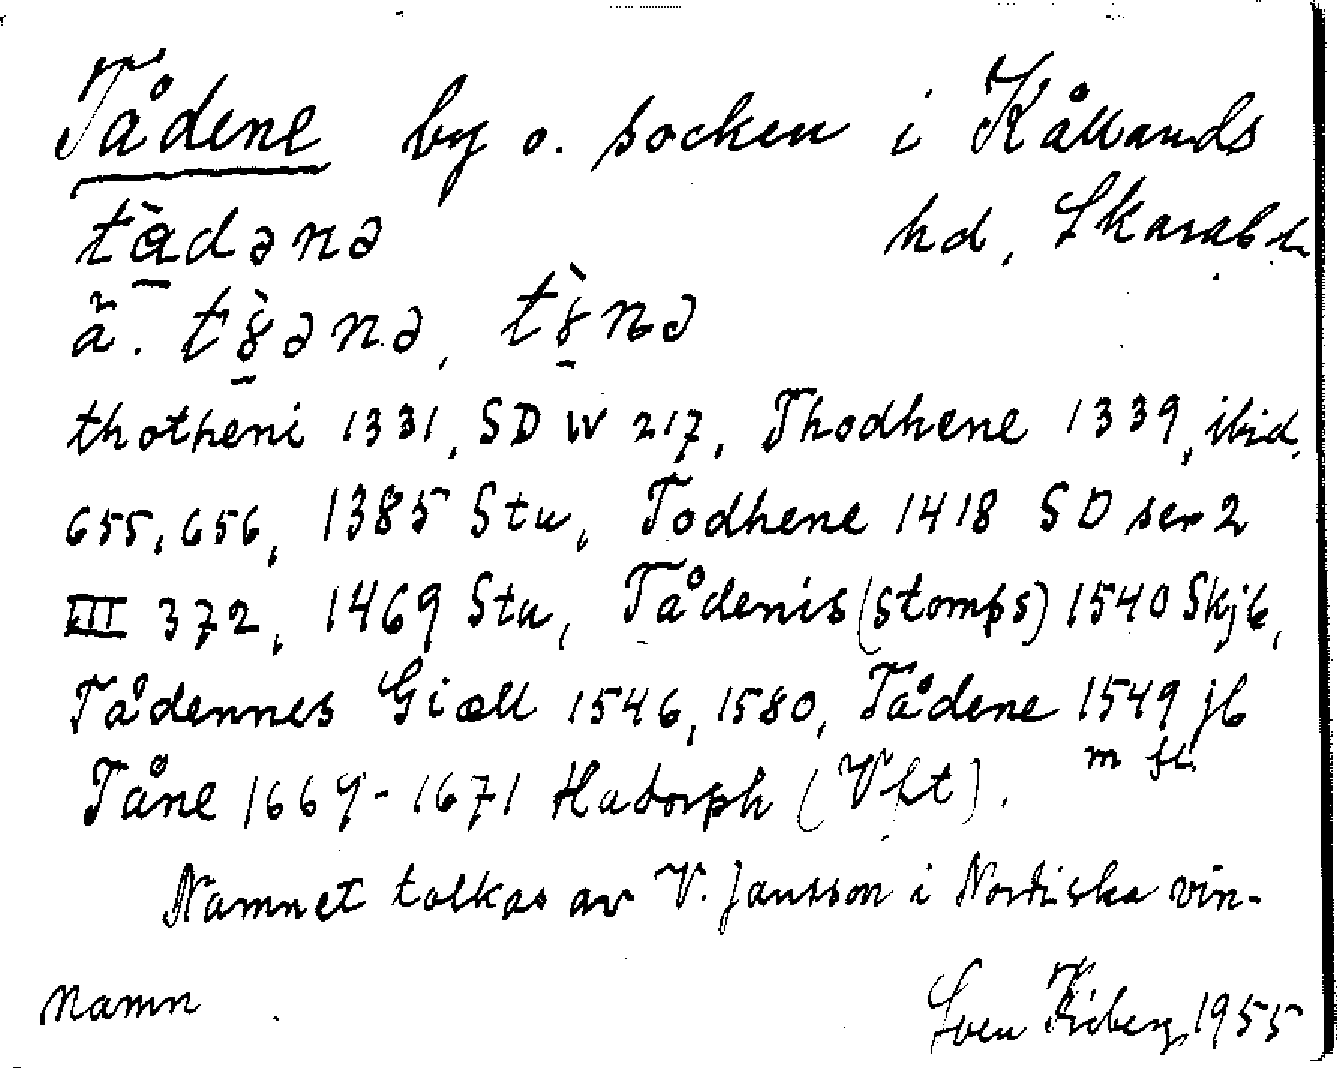 Tådene by o. socken i Kållands
tàdənə hd, Skarab. l.
ä. tɣ̀ənə, tɣ̀nə
thotheni 1331, SD IV 217, Thodhene 1339, ibid.
655, 656, 1385 Stu, Todhene 1418 SD ser 2
III 372, 1469 Stu, Tådenis (stomps) 1540 Skjb,
Tådennes Giæll 1546, 1580, Tådene 1549 jb
m fl.
Tåne 1669-1671 Hadorph (Vft).
Namnet tolkas av V. Jansson i Nordiska vin-
namn
Sven 1955